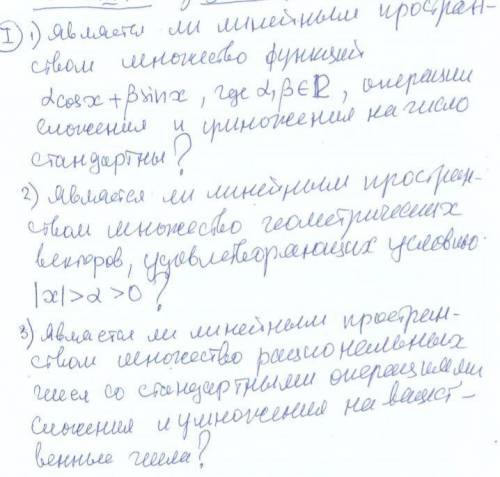 I 1) Является ли линейным простран-
ством множество функций
αcosx + βsinx, где α, β ∈ ℝ, операции
сложения и умножения на число
стандартны?
2) Является ли линейным простран-
ством множество геометрических
векторов, удовлетворяющих условию
|x| > α > 0?
3) Является ли линейным простран-
ством множество рациональных
чисел со стандартными операциями
сложения и умножения на вещест-
венные числа?